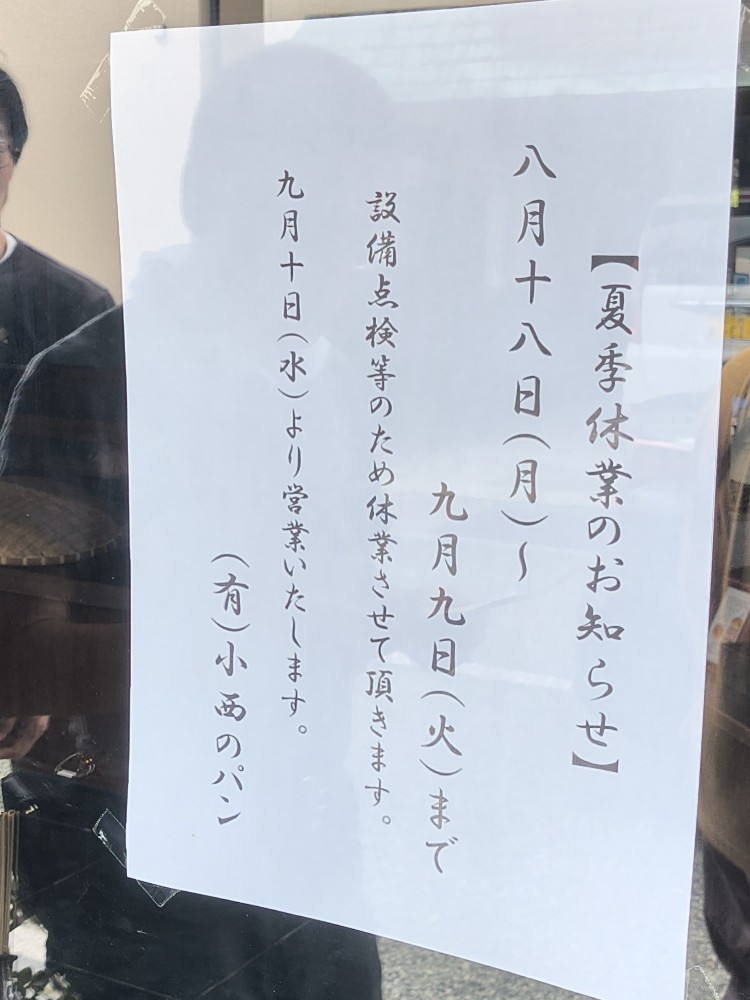 【夏季休業のお知らせ】
八月十八日(月)～
九月九日(火)まで
設備点検等のため休業させて頂きます。
九月十日(水)より営業いたします。
(有)小西のパン